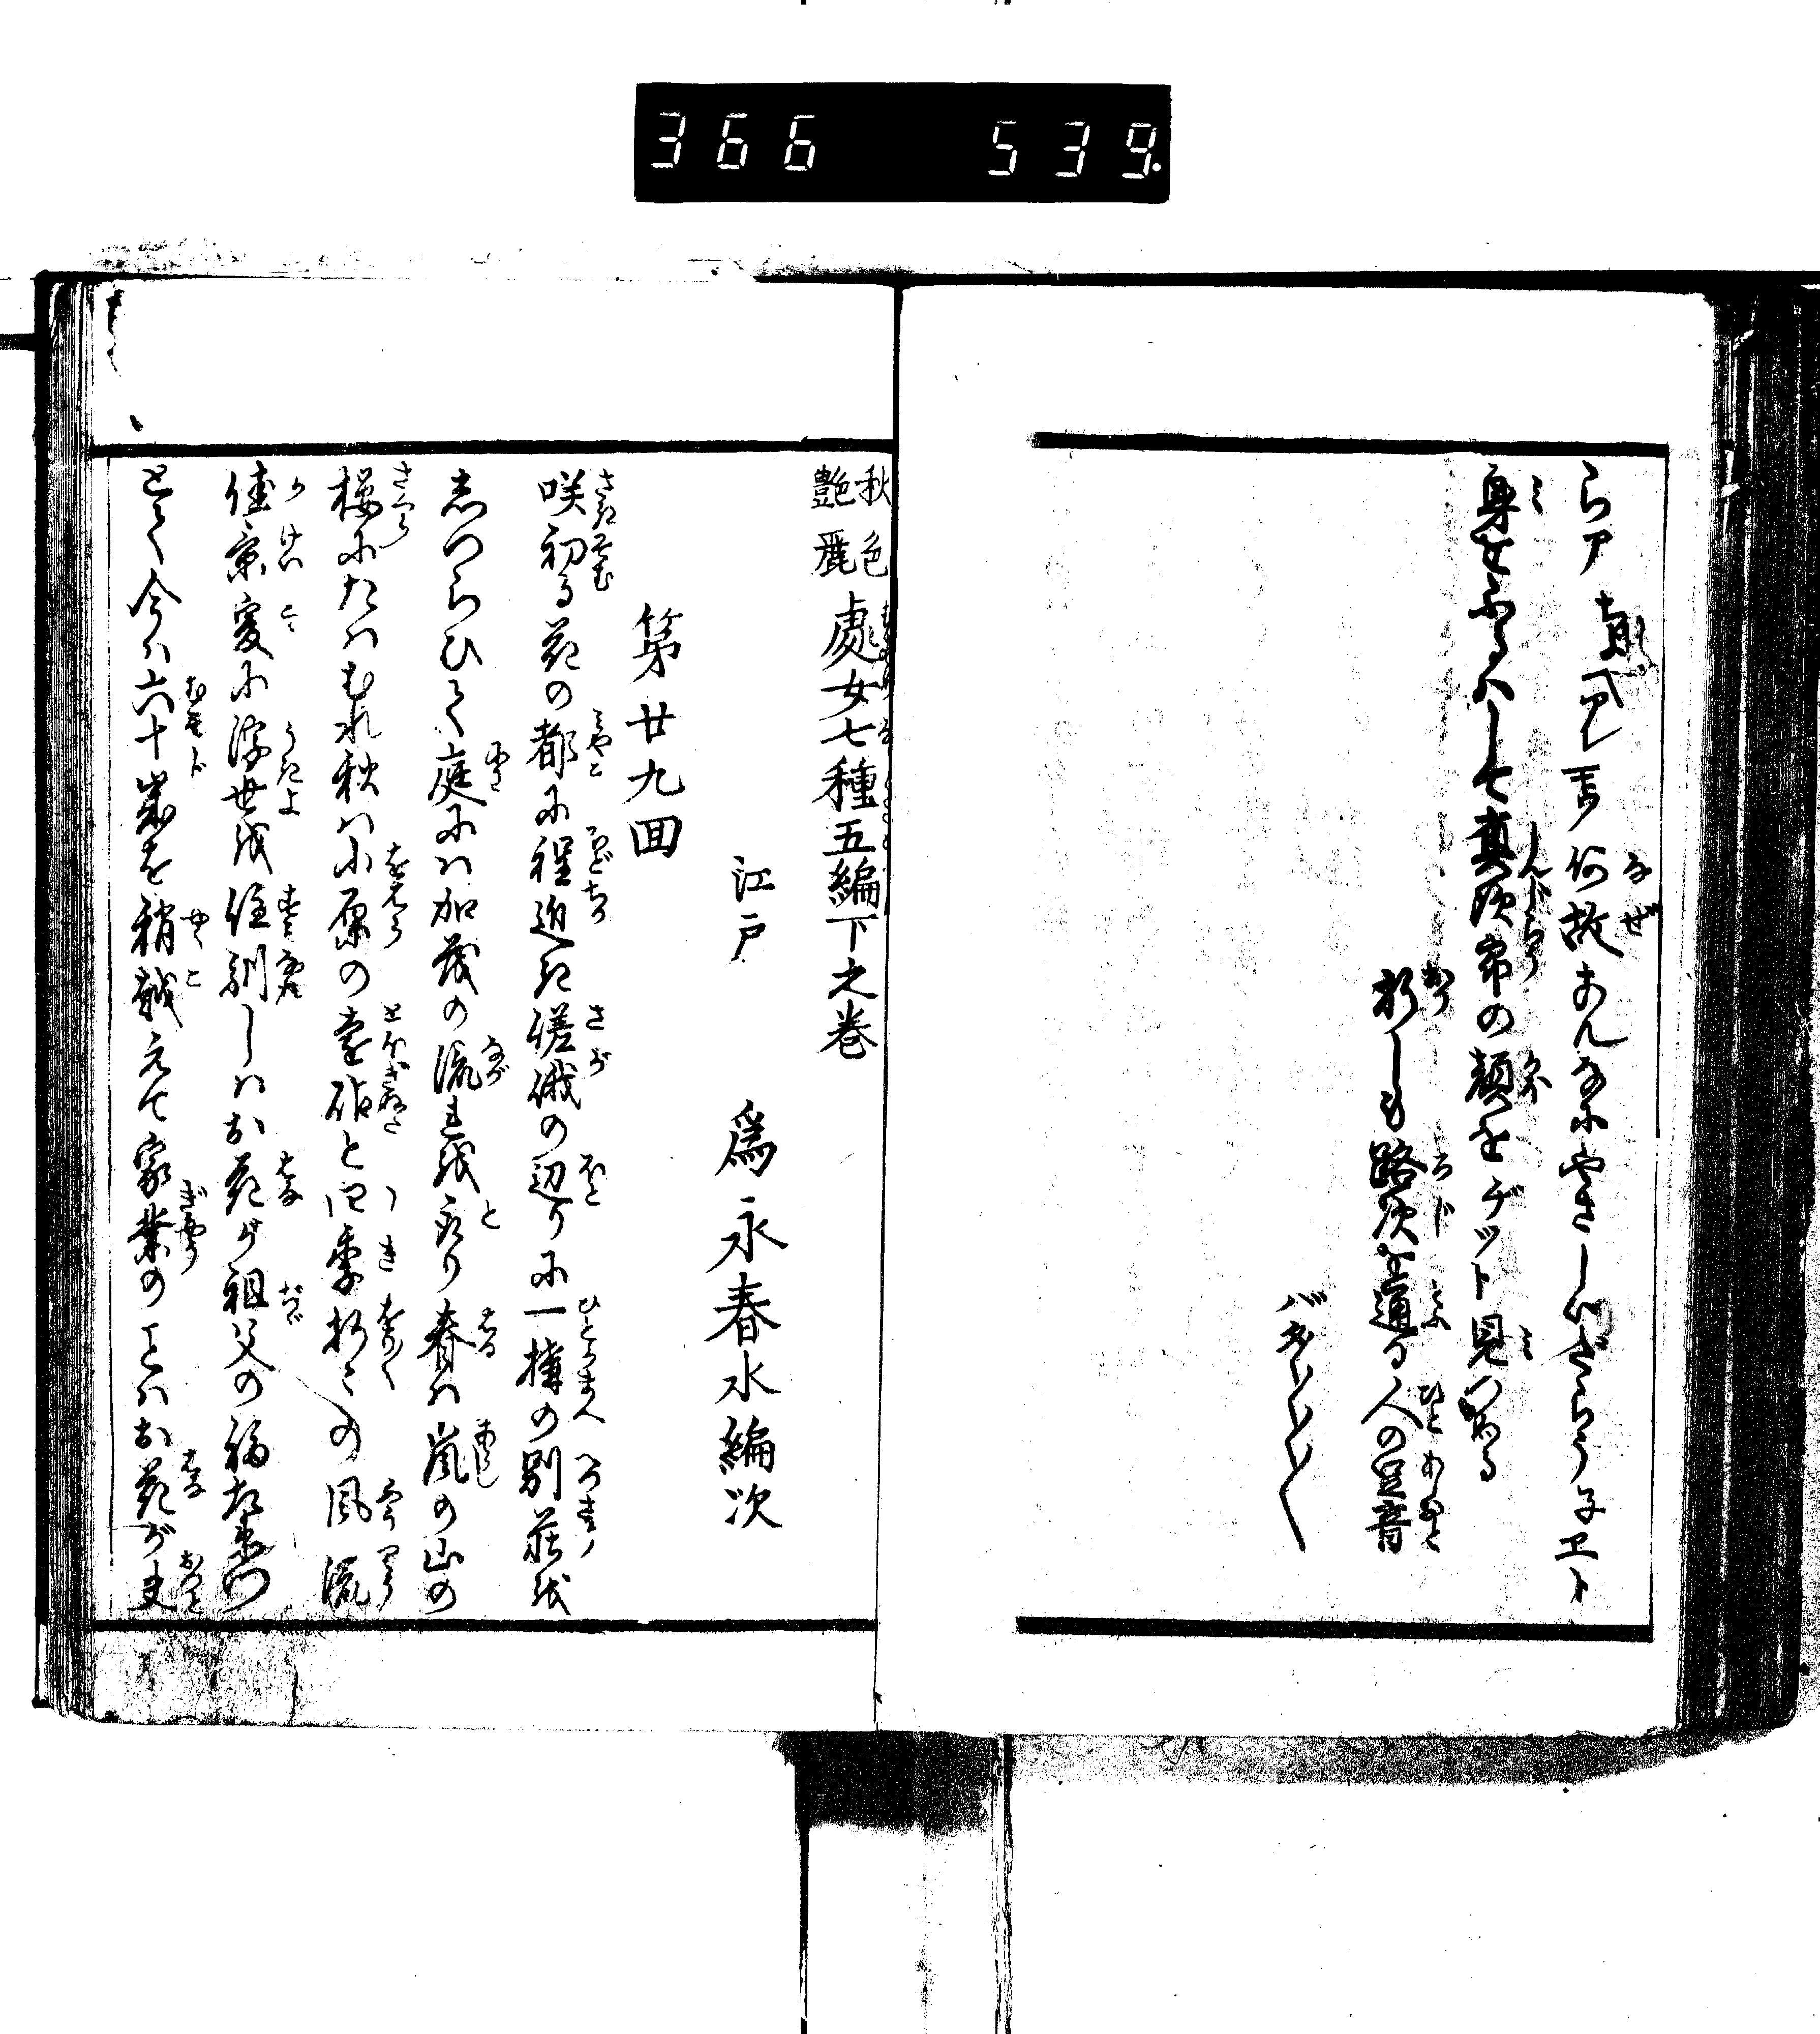 366 539.
らア
何故あんなにやさしいだらう子エト
身をふるはして真次郎の顔をヂット見つめる
折しも路次を通る人の足音
バタ〳〵〳〵〳〵
秋色艶麗 處女七種五編下之巻
江戸 爲永春水編次
第廿九回
咲初る花の都に程近き嵯峨の辺りに一搆の別荘を
志つらひて庭には加茂の流を取り春は嵐の山の
桜にたはむれ秋は小原の遠砧と四季折々の風流
佳景爰に浮世を住馴しはお花が祖父の福左衛門
とて今は六十歳を稍越えて家業のことはお花が夫